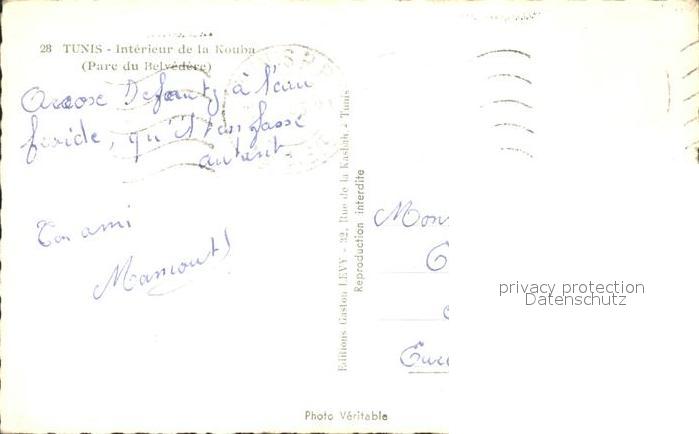 28 TUNIS - Intérieur de la Kouba
(Parc du Belvédère)
Arrose Defautz à l'eau
froide, qu'il t'en fasse
autant.
Ton ami
Editions Gaston LEVY - 32, Rue de la Kasbah - Tunis
Reproduction interdite
privacy protection
Datenschutz
Photo Véritable